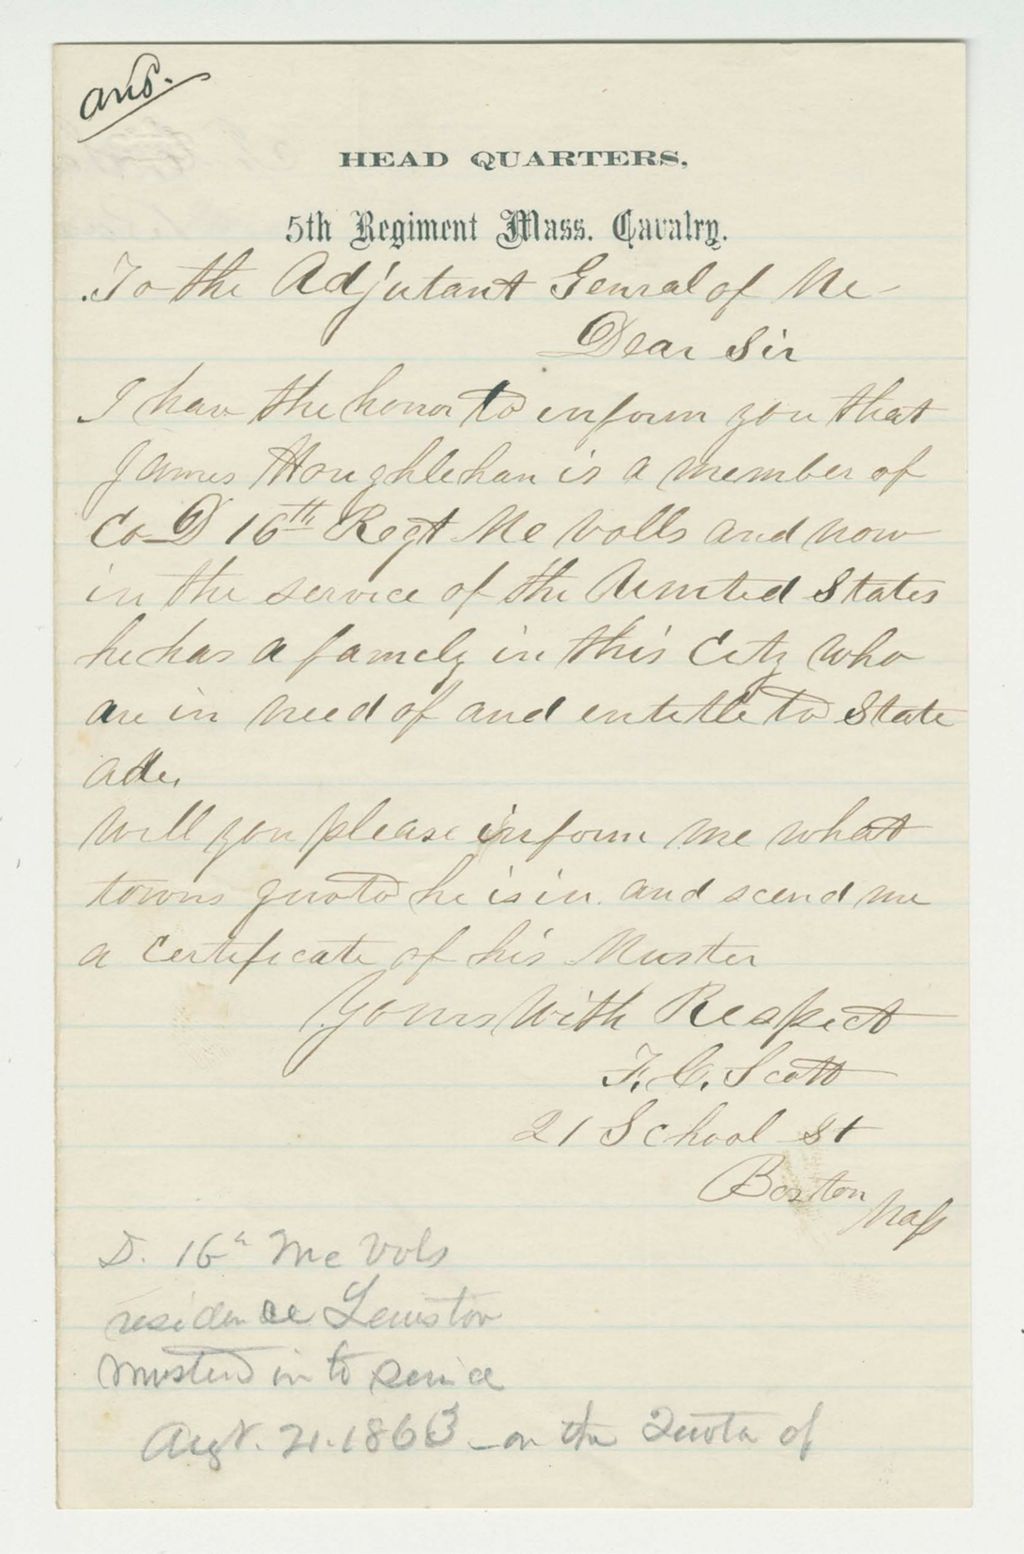 ans.
HEAD QUARTERS,
5th Regiment Mass. Cavalry.
To the Adjutant Genral of Me-
Dear Sir
I have the honor to inform you that
James Houghlehan is a member of
Co D 16th Regt Me Volls and now
in the service of the Uunited States
he has a family in this City who
are in need of and entetle to State
ade.
Will you please inform me what
towns quoto he is in. and scend me
a Certificate of his Muster
Yours With Respect
F. C. Scott
21 School St
Boston
Mass
D. 16" Me Vols
residence Lewiston
Mustered in to service
Augt. 21. 1863 - on the Quota of